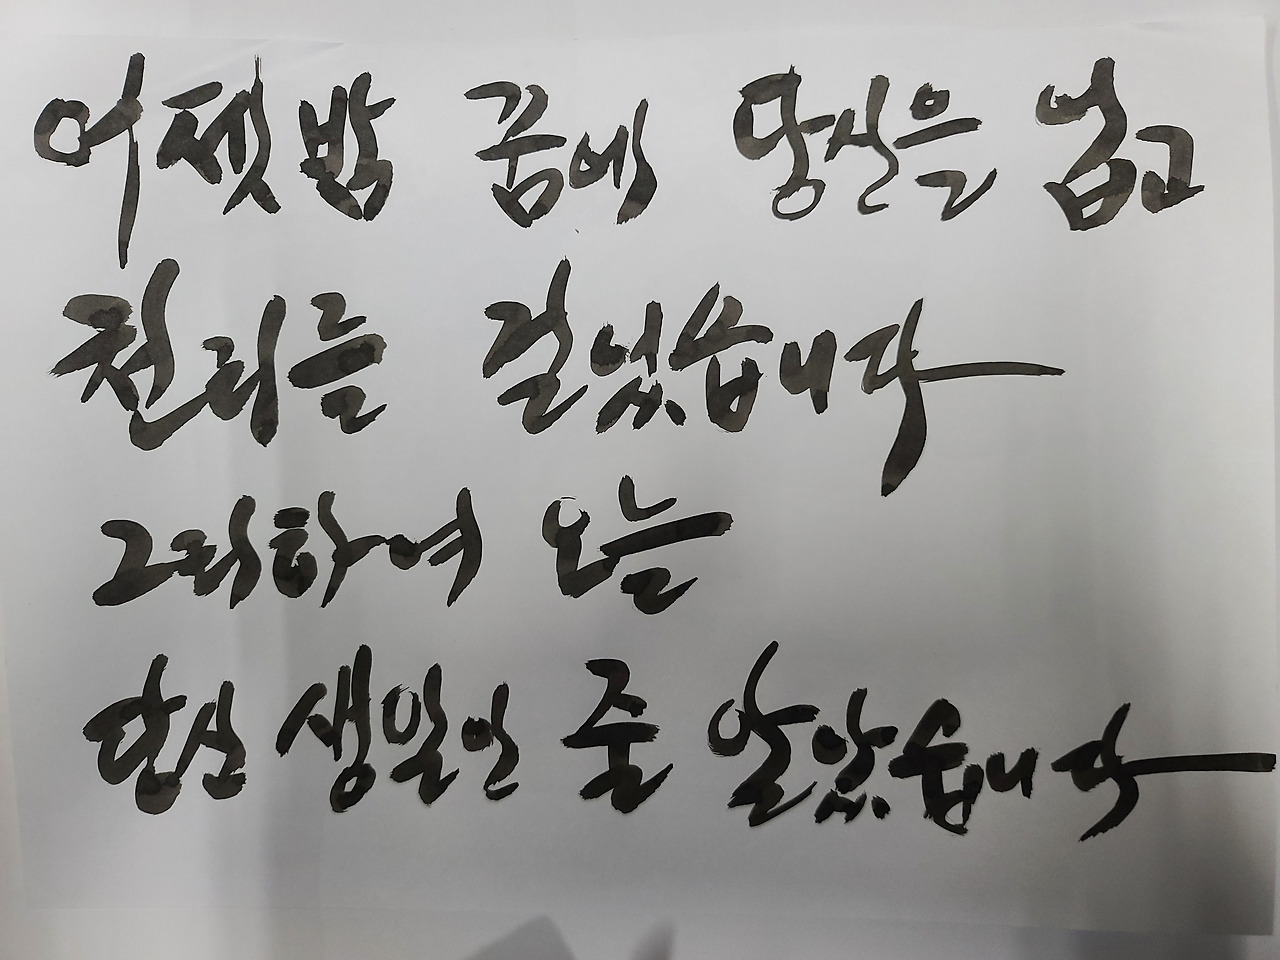 어젯밤 꿈에 당신을 업고
천리를 걸었습니다
그리하여 오늘
당신 생일인 줄 알았습니다